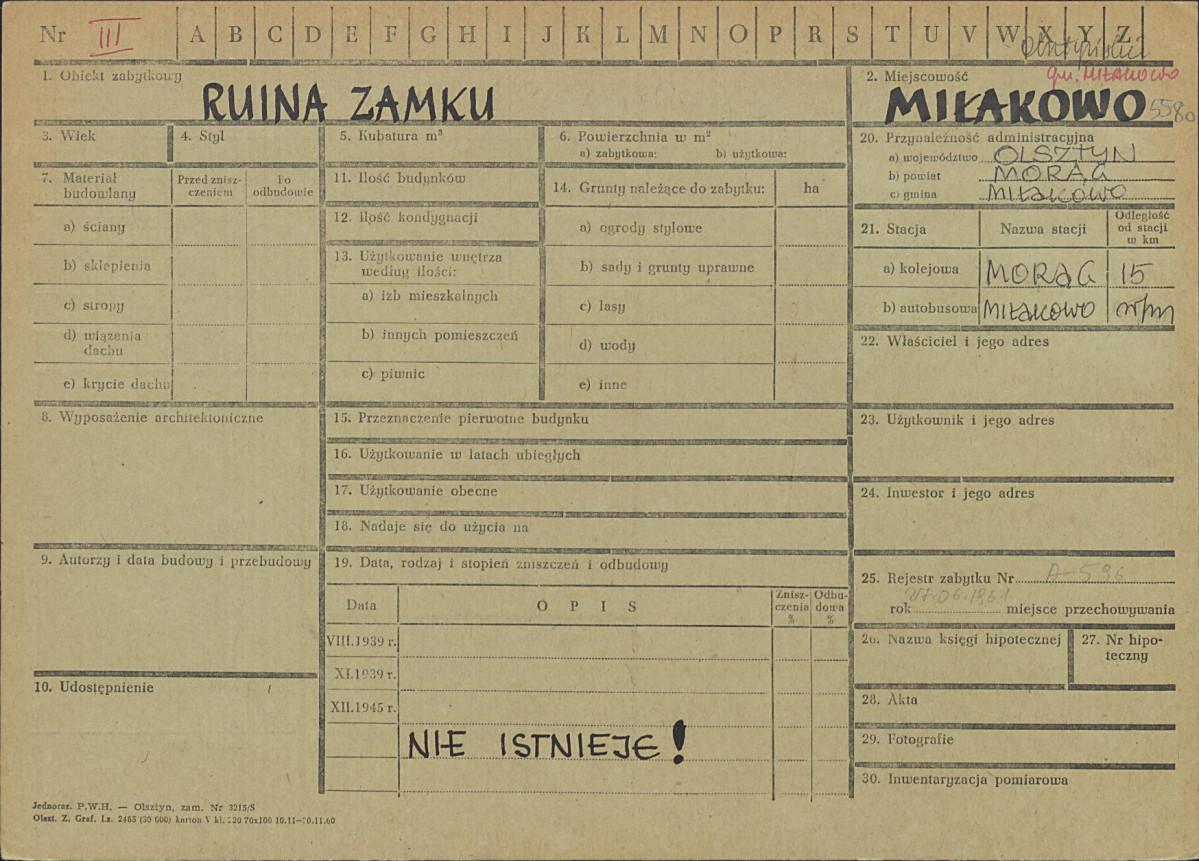 Nr III A B C D E F G H I J K L M N O P R S T U V W X Y Z
gm. MIŁAKOWO
1. Obiekt zabytkowy
RUINA ZAMKU
2. Miejscowość
MIŁAKOWO 5580
3. Wiek
4. Styl
5. Kubatura m³
6. Powierzchnia w m²
a) zabytkowa: b) użytkowa:
7. Materiał budowlany
Przed zniszczeniem
Po odbudowie
a) ściany
b) sklepienia
c) stropy
d) wiązania dachu
e) krycie dachu
11. Ilość budynków
12. Ilość kondygnacji
13. Użytkowanie wnętrza według ilości:
a) izb mieszkalnych
b) innych pomieszczeń
c) piwnic
14. Grunty należące do zabytku: ha
a) ogrody stylowe
b) sady i grunty uprawne
c) lasy
d) wody
e) inne
20. Przynależność administracyjna
a) województwo OLSZTYN
b) powiat MORĄG
c) gmina MIŁAKOWO
21. Stacja
Nazwa stacji
Odległość od stacji w km
a) kolejowa MORĄG 15
b) autobusowa MIŁAKOWO w/m
22. Właściciel i jego adres
8. Wyposażenie architektoniczne
15. Przeznaczenie pierwotne budynku
16. Użytkowanie w latach ubiegłych
17. Użytkowanie obecne
18. Nadaje się do użycia na
23. Użytkownik i jego adres
24. Inwestor i jego adres
9. Autorzy i data budowy i przebudowy
19. Data, rodzaj i stopień zniszczeń i odbudowy
Data
O P I S
Zniszczenia %
Odbudowa %
VIII.1939 r.
XI.1939 r.
XII.1945 r.
NIE ISTNIEJE!
10. Udostępnienie
25. Rejestr zabytku Nr A-596
27.06.1961
rok miejsce przechowywania
26. Nazwa księgi hipotecznej
27. Nr hipoteczny
28. Akta
29. Fotografie
30. Inwentaryzacja pomiarowa
Jednoraz. P.W.H. — Olsztyn, zam. Nr 3215/S
Olszt. Z. Graf. Lz. 2465 (30 000) karton V kl. 220 70x100 10.11—10.11.60